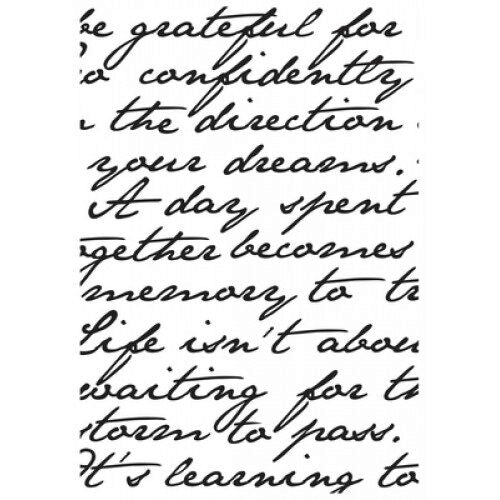 be grateful for
Go confidently
n the direction
your dreams.
A day spent
ogether becomes
memory to tr
Life isn't abou
waiting for th
storm to pass.
It's learning to